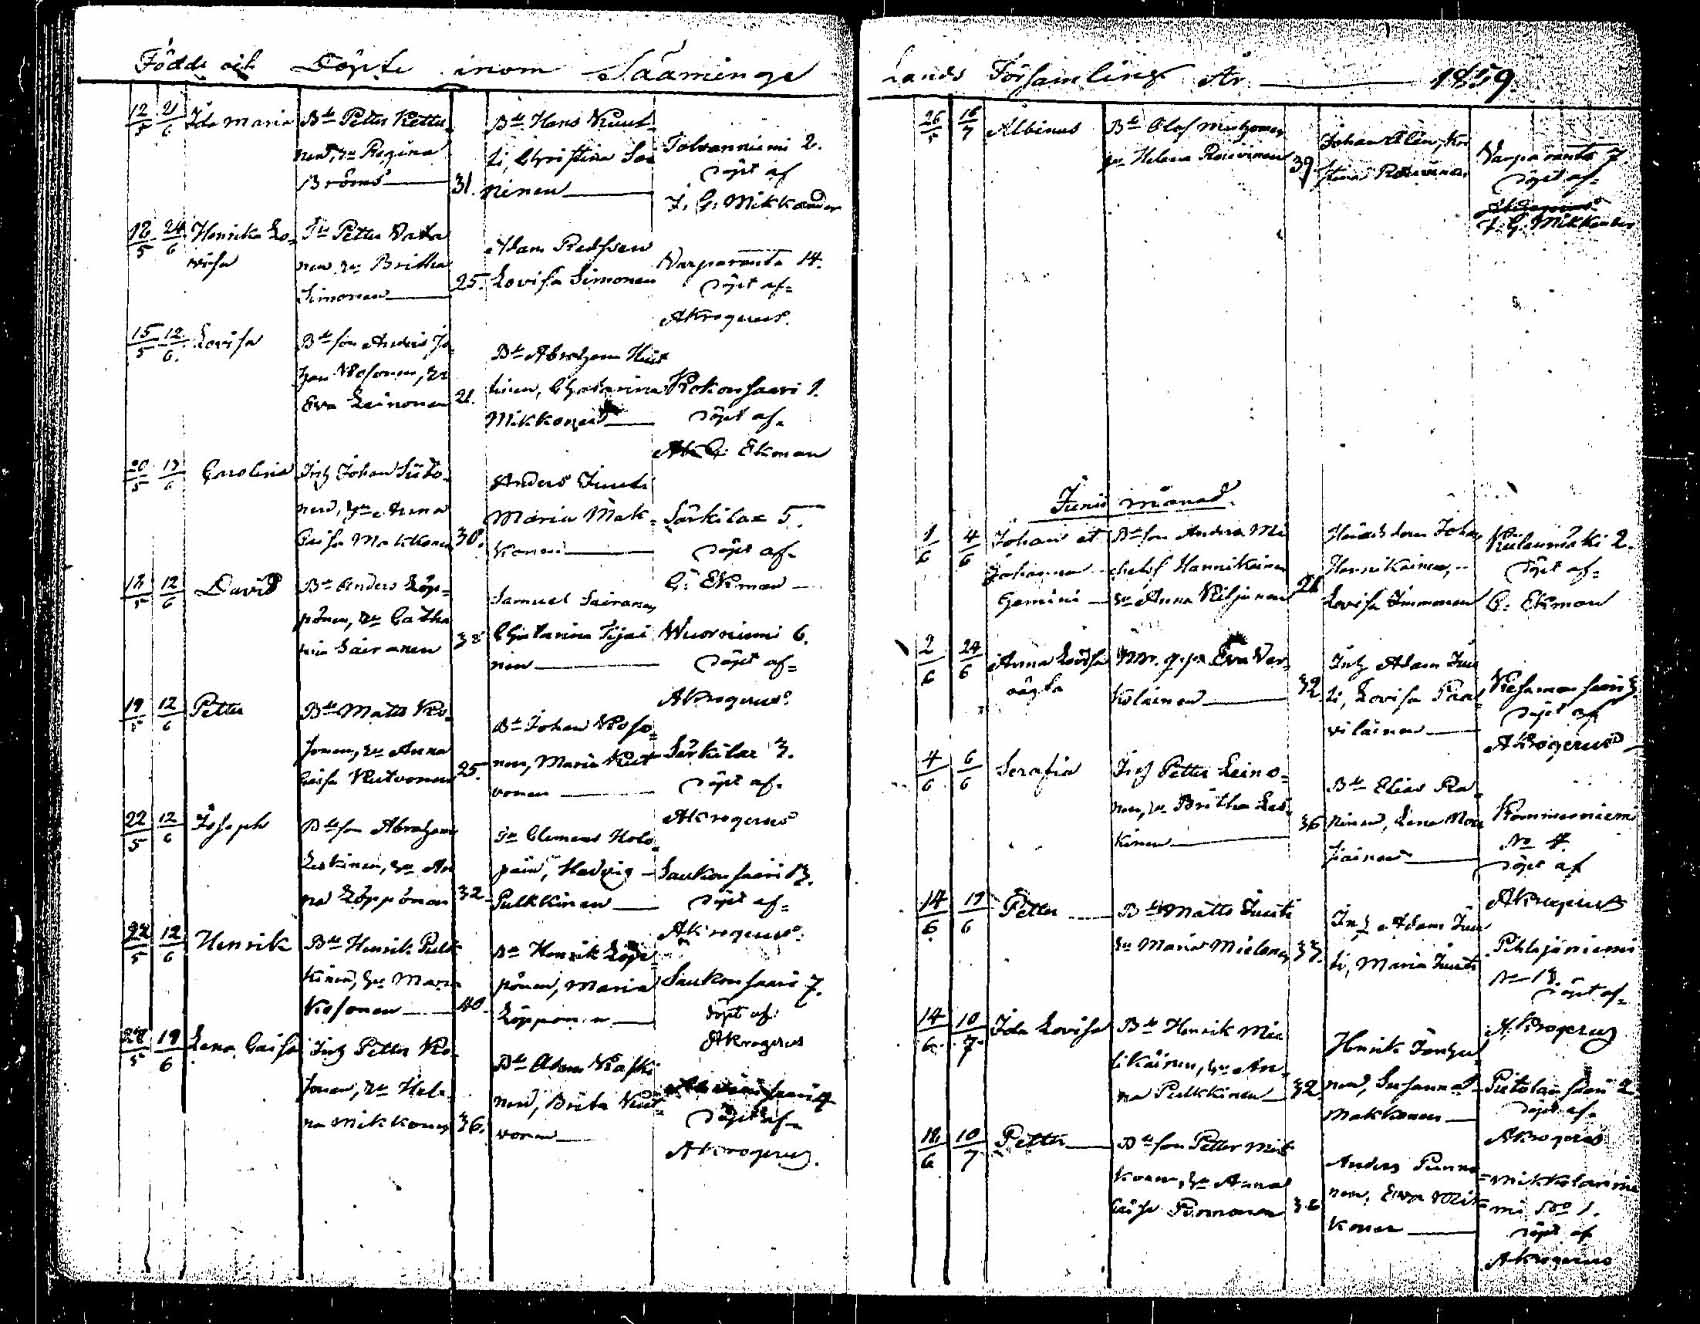 Födde och Döpte inom Sääminge
12/5 21/6 Ida Maria Bd Petter Kettu-
nen, hu Regina
Bröms 31.
Bd Hans Kuut-
ti, Christina Sai-
ninen
Tolvanniemi 2.
döpt af
F. G. Mikkander
12/5 24/6 Henrika Lo-
visa
Petter Vata-
nen, hu Britha
Simonen 25.
Adam
Lovisa Simonen
Varparanta 14.
döpt af
AKrogerus.
15/5 12/6 Lovisa
Bd son Anders Jo-
han Kosonen, hu
Eva Leinonen 21.
Bd Abraham
tinen, Chatarina
Mikkonen
Kokonsaari 1.
döpt af
G. Ekman
20/5 Carolina
Inh Johan
nen, hu Anna
Caisa Makkonen 30.
Anders Juuti
Maria Mak-
konen
Särkilax 5.
döpt af
G. Ekman
18/5 12/6 David
Bd Anders Löp-
pönen, hu Catha-
rina Sairanen
Samuel Sairanen
Chatarina Tijai-
nen
Wuoriniemi 6.
döpt af
AKrogerus.
19/5 12/6 Petter
Bd Matts Ko-
sonen, hu Anna
Caisa Kutvonen 25.
Bd Johan Koso-
nen, Maria Kut-
vonen
Särkilax 3.
döpt af
AKrogerus
22/5 12/6 Joseph
Bd son Abraham
Leskinen, hu An-
na Löppönen 32.
Clemens Holo-
pain, Hedvig
Pulkkinen
Saukonsaari 13.
döpt af
AKrogerus.
22/5 12/6 Henrik
Bd Henrik Pulk-
kinen, hu Maria
Kosonen 40.
Bd Henrik Löp-
pönen, Maria
Löppönen
Saukonsaari 7.
döpt af
AKrogerus
28/5 19/6 Lena Caisa
Inh Petter Ko-
sonen, hu Hele-
na Mikkonen 36.
Bd Adam Kaski-
nen, Brita Kut-
vonen
döpt af
AKrogerus.
Lands Församling År 1859.
26/5 16/7 Albinus
Bd Olof Muhonen
hu Helena Rouvinen 39.
Johan
stina Rouvinen
Varparanta 7
döpt af
F. G. Mikkander
Junii månad.
1/6 4/6 Johan et
Johanna
Gemini
Bd son Anders Mi-
chelsson Hannikainen
hu Anna Kiljunen 21
Johan
Hannikainen,
Lovisa Immonen
Kulenmäki 2.
döpt af
G. Ekman
2/6 24/6 Anna Lovisa
oägta
Eva Var-
kolainen 32
Inh Adam Juu-
ti, Lovisa Paa-
vilainen
döpt af
AKrogerus
4/6 6/6 Serafia
Inh Petter Leino-
nen, hu Britha Les-
kinen 36
Bd Elias
ninen, Lena Nou-
siainen
Kommerniemi
No 4.
döpt af
AKrogerus
14/6 19/6 Petter
Bd Matts Juuti
hu Maria Mielonen 33.
Inh Adam Juu-
ti, Maria Juuti
Pihlajaniemi
No 18.
döpt af
AKrogerus
14/6 10/7 Ida Lovisa
Bd Henrik Mie-
likäinen, hu An-
na Pulkkinen 32.
Henrik
nen, Susanna
Makkonen
Pietolansaari 2
döpt af
AKrogerus
18/6 10/7 Petter
Bd son Petter Mik-
konen, hu Anna
Caisa
Anders Punna-
nen, Ewa Mik-
konen
Mikkolannie-
mi No 1.
döpt af
AKrogerus